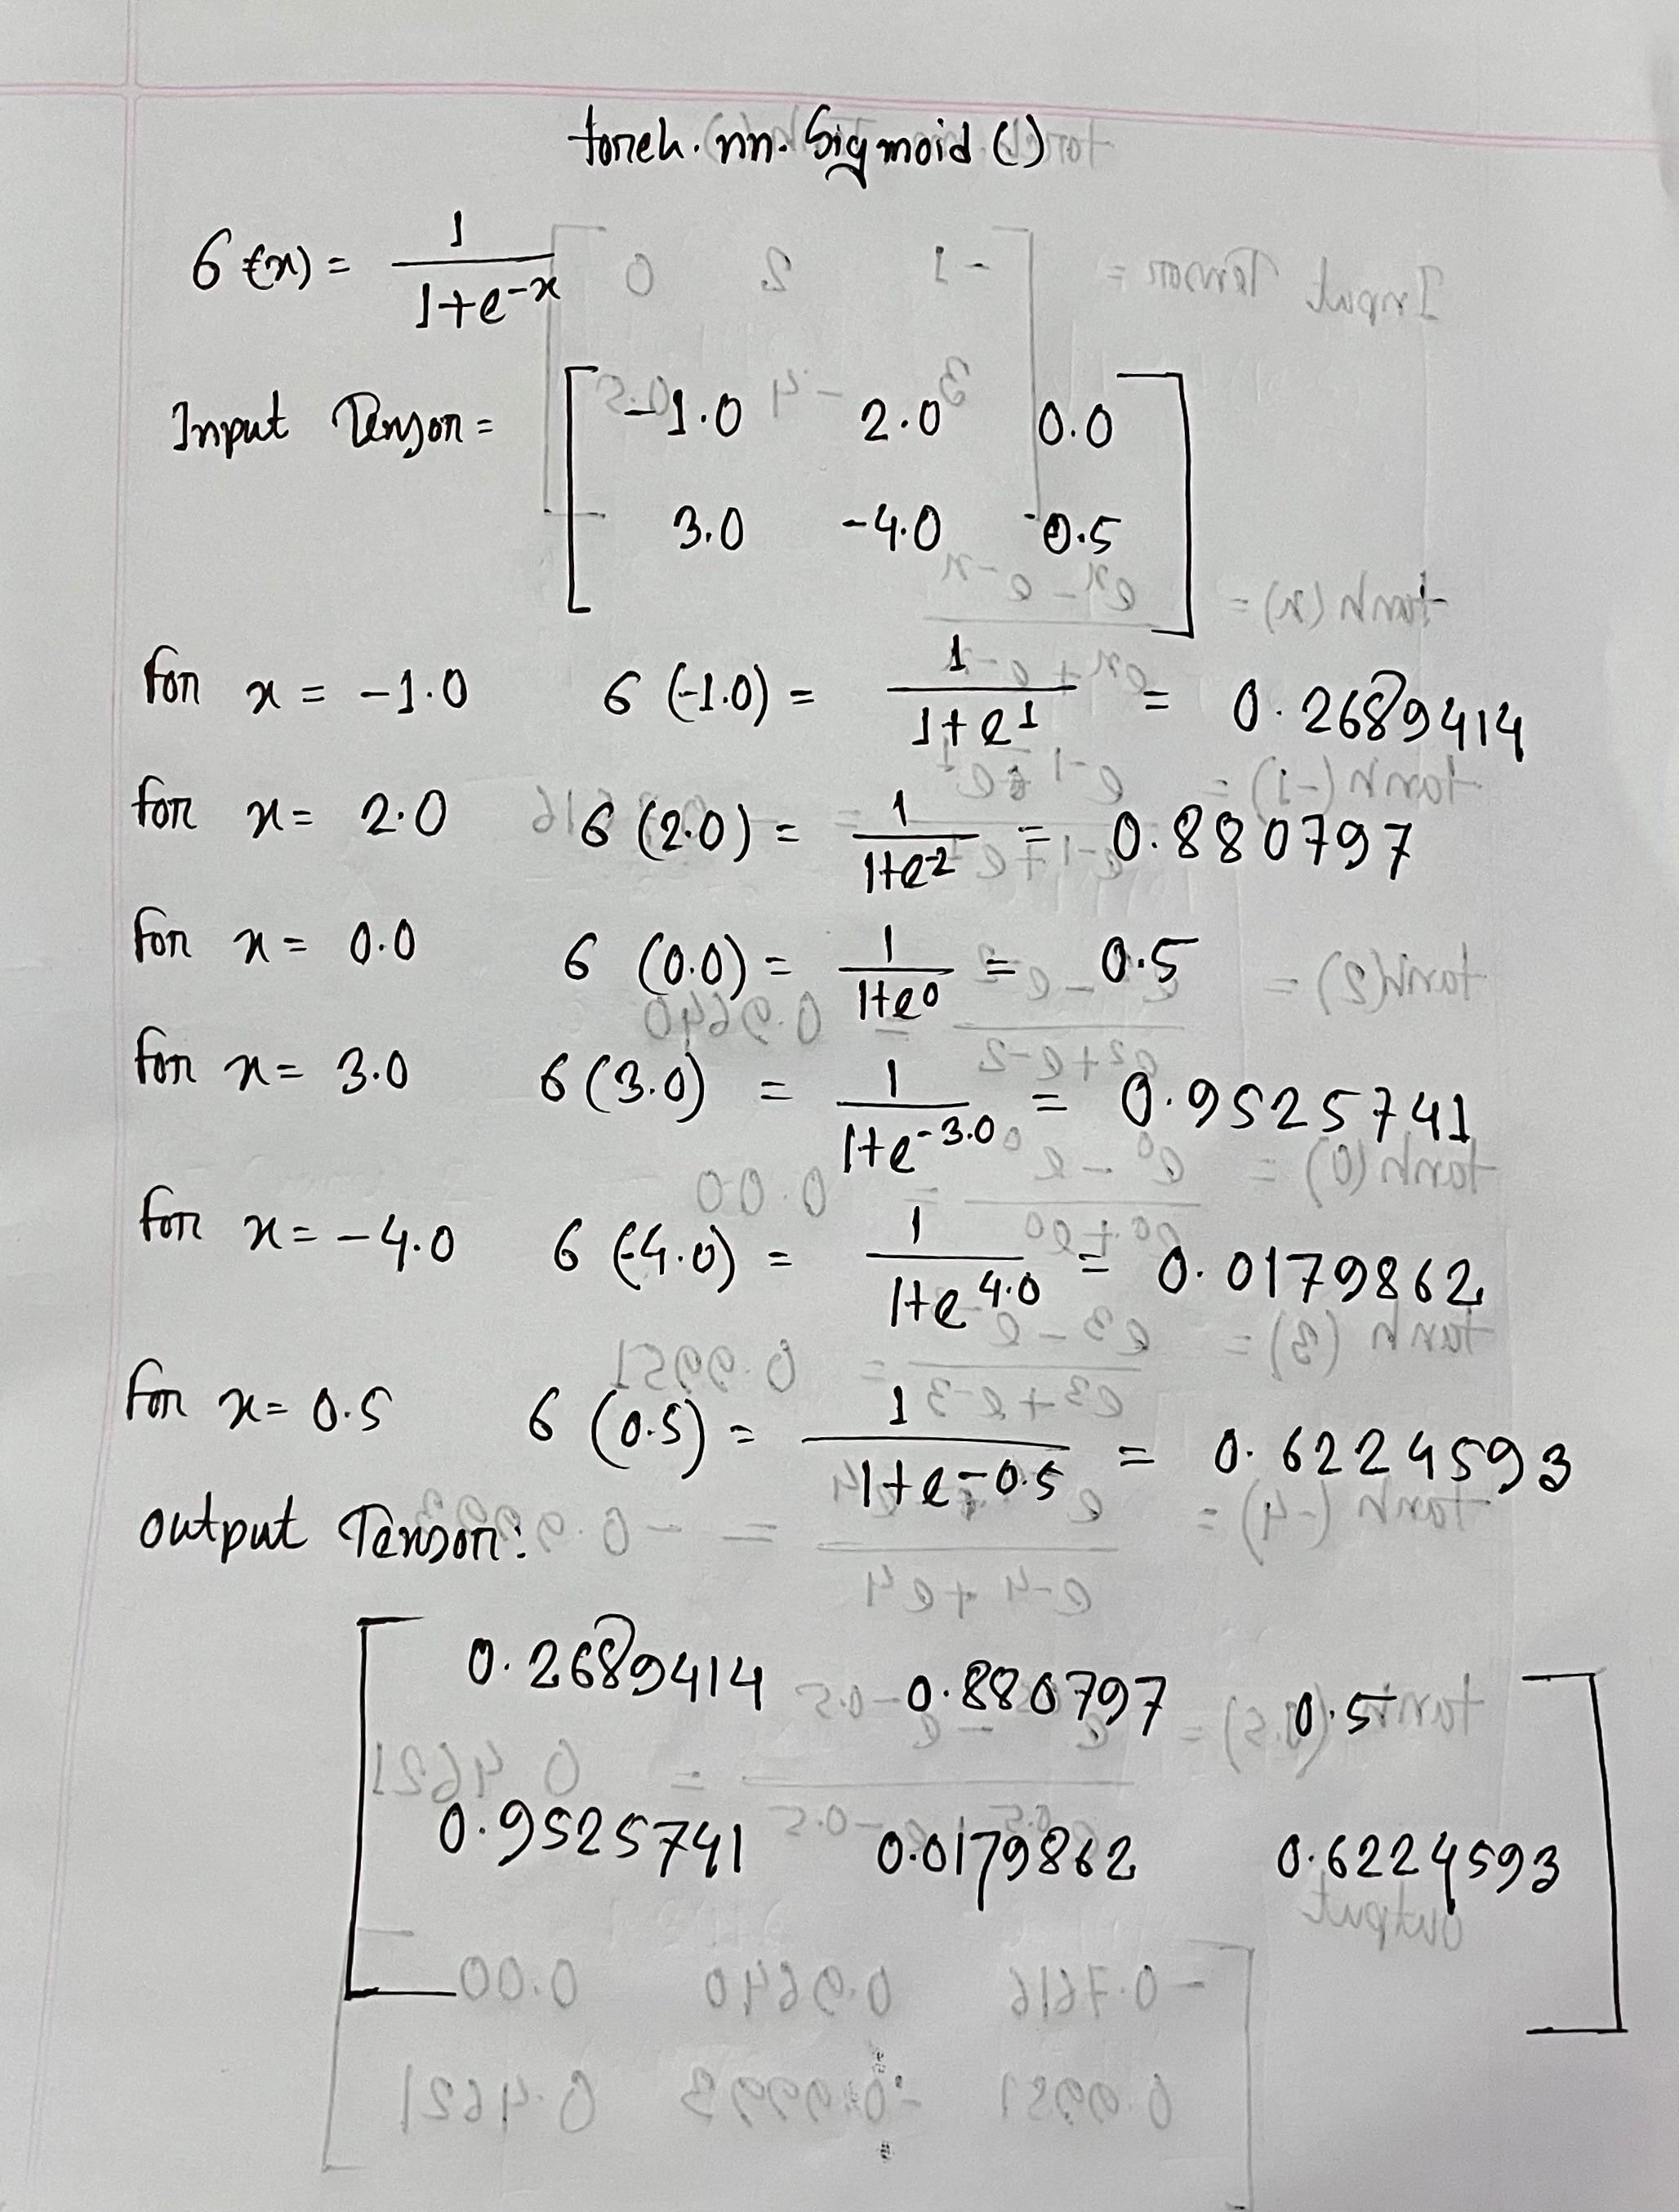 torch.nn.Sigmoid()
σ(x) = 1 / (1+e^-x)
Input Tensor = [ -1.0 2.0 0.0
3.0 -4.0 0.5 ]
for x = -1.0 σ(-1.0) = 1 / (1+e^1) = 0.2689414
for x = 2.0 σ(2.0) = 1 / (1+e^-2) = 0.880797
for x = 0.0 σ(0.0) = 1 / (1+e^0) = 0.5
for x = 3.0 σ(3.0) = 1 / (1+e^-3.0) = 0.9525741
for x = -4.0 σ(-4.0) = 1 / (1+e^4.0) = 0.0179862
for x = 0.5 σ(0.5) = 1 / (1+e^-0.5) = 0.6224593
Output Tensor:
[ 0.2689414 0.880797 0.5
0.9525741 0.0179862 0.6224593 ]